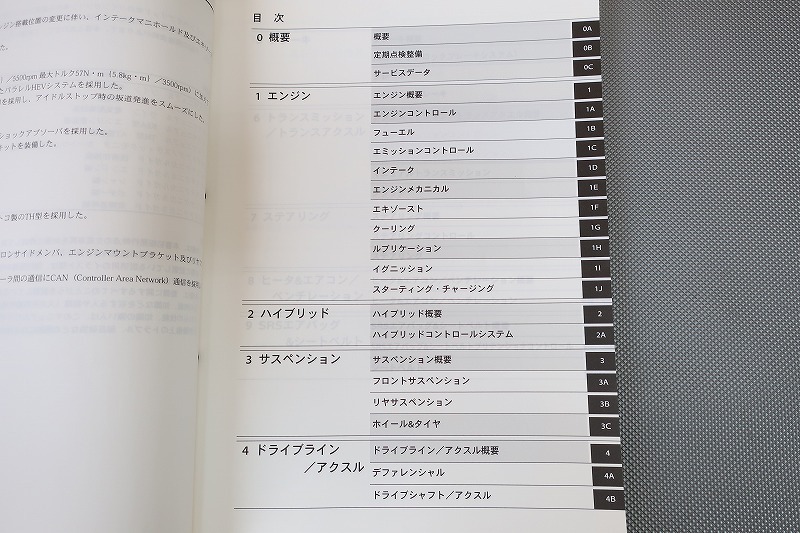 ンジン搭載位置の変更に伴い、インテークマニホールド及びエキゾ
た。
）／5500rpm 最大トルク57N・m（5.8kg・m）／3500rpm）に
たパラレルHEVシステムを採用した。
を採用し、アイドルストップ時の坂道発進をスムーズにした。
ショックアブソーバを採用した。
キットを装備した。
トコ製のTH型を採用した。
フロンサイドメンバ、エンジンマウントブラケット及び
ーラ間の通信にCAN（Controller Area Network）通信を採
目 次
0 概要
概要 0A
定期点検整備 0B
サービスデータ 0C
1 エンジン
エンジン概要 1
エンジンコントロール 1A
フューエル 1B
エミッションコントロール 1C
インテーク 1D
エンジンメカニカル 1E
エキゾースト 1F
クーリング 1G
ルブリケーション 1H
イグニッション 1I
スターティング・チャージング 1J
2 ハイブリッド
ハイブリッド概要 2
ハイブリッドコントロールシステム 2A
3 サスペンション
サスペンション概要 3
フロントサスペンション 3A
リヤサスペンション 3B
ホイール&タイヤ 3C
4 ドライブライン
／アクスル
ドライブライン／アクスル概要 4
デファレンシャル 4A
ドライブシャフト／アクスル 4B